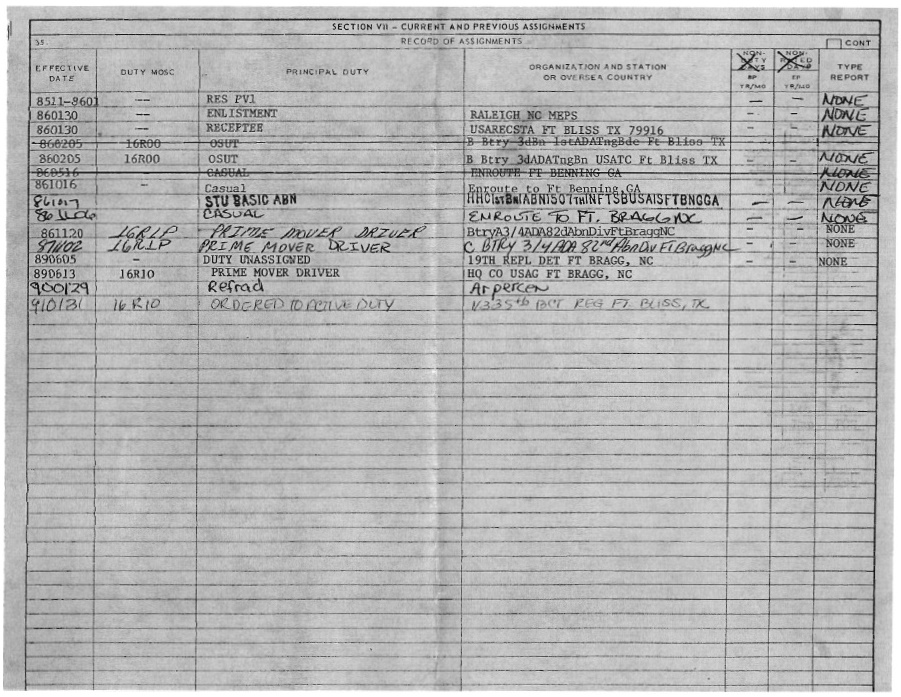 SECTION VII - CURRENT AND PREVIOUS ASSIGNMENTS
35. RECORD OF ASSIGNMENTS CONT
EFFECTIVE DATE DUTY MOSC PRINCIPAL DUTY ORGANIZATION AND STATION OR OVERSEA COUNTRY NON-DUTY DAYS NON-RATED DAYS TYPE REPORT
BP YR/MO EP YR/MO
8511-8601 -- RES PV1 - - NONE
860130 -- ENLISTMENT RALEIGH NC MEPS - - NONE
860130 -- RECEPTEE USARECSTA FT BLISS TX 79916 - - NONE
860205 16R00 OSUT B Btry 3dBn 1stADATngBde Ft Bliss TX
860205 16R00 OSUT B Btry 3dADATngBn USATC Ft Bliss TX - - NONE
860516 CASUAL ENROUTE FT BENNING GA NONE
861016 - Casual Enroute to Ft Benning,GA NONE
861017 STU BASIC ABN HHC1STBN(ABN)507THINFTSBUSAISFTBNGGA - - NONE
CASUAL ENROUTE TO FT. BRAGG NC - - NONE
861120 16R1P PRIME MOVER DRIVER BtryA3/4ADA82dAbnDivFtBraggNC - - NONE
871102 16R1P PRIME MOVER DRIVER C BTRY 3/4 ADA 82nd AbnDivFtBraggNC - - NONE
890605 - DUTY UNASSIGNED 19TH REPL DET FT BRAGG, NC - - NONE
890613 16R10 PRIME MOVER DRIVER HQ CO USAG FT BRAGG, NC
900129 Refrad Arpercen
910131 16R10 ORDERED TO ACTIVE DUTY 1/335th BCT REG FT. BLISS, TX